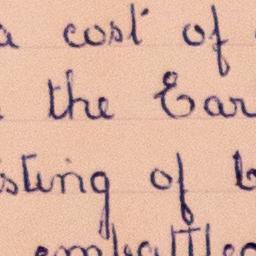 a cost of
the Ear
sting of b
embattled